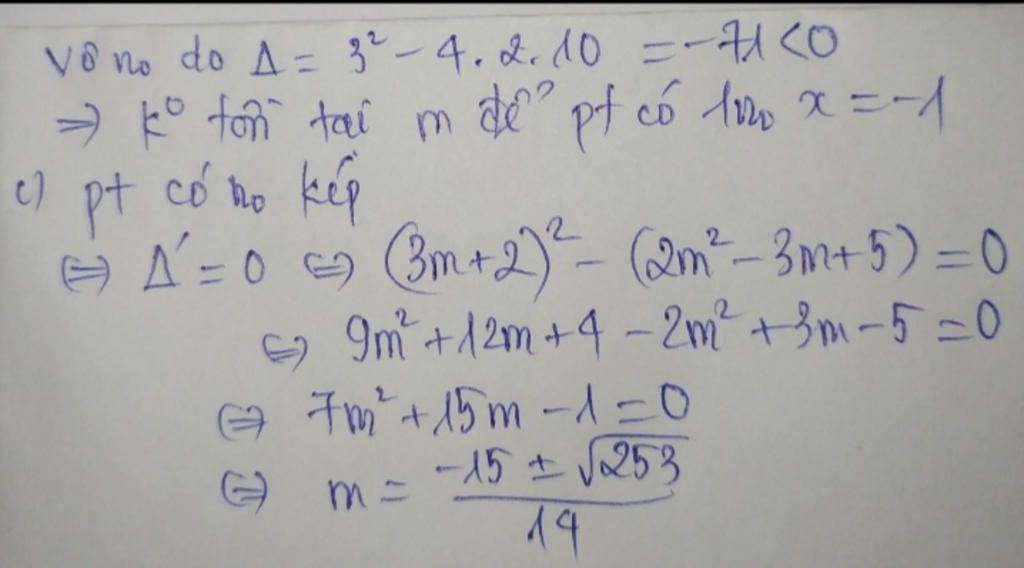 vô no do Δ = 3² - 4.2.10 = -71 < 0
⇒ k⁰ tồn tại m để pt có 1no x = -1
c) pt có no kép
⇔ Δ' = 0 ⇔ (3m+2)² - (2m² - 3m + 5) = 0
⇔ 9m² + 12m + 4 - 2m² + 3m - 5 = 0
⇔ 7m² + 15m - 1 = 0
⇔ m = (-15 ± √253)/14